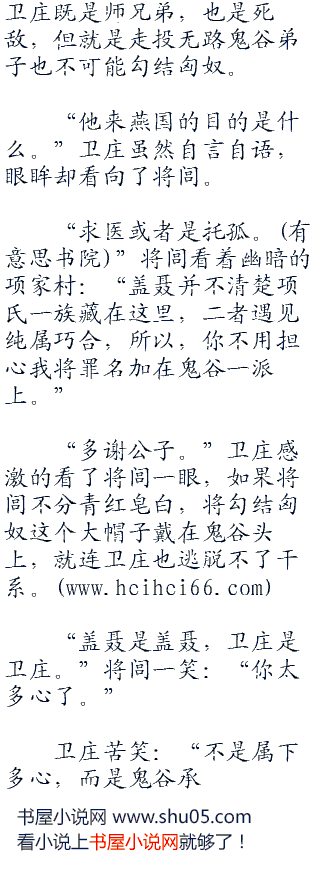 卫庄既是师兄弟，也是死
敌，但就是走投无路鬼谷弟
子也不可能勾结匈奴。
“他来燕国的目的是什
么。”卫庄虽然自言自语，
眼眸却看向了将闾。
“求医或者是托孤。(有
意思书院)”将闾看着幽暗的
项家村：“盖聂并不清楚项
氏一族藏在这里，二者遇见
纯属巧合，所以，你不用担
心我将罪名加在鬼谷一派
上。”
“多谢公子。”卫庄感
激的看了将闾一眼，如果将
闾不分青红皂白，将勾结匈
奴这个大帽子戴在鬼谷头
上，就连卫庄也逃脱不了干
系。(www.hcihci66.com)
“盖聂是盖聂，卫庄是
卫庄。”将闾一笑：“你太
多心了。”
卫庄苦笑：“不是属下
多心，而是鬼谷承
书屋小说网 www.shu05.com
看小说上书屋小说网就够了！